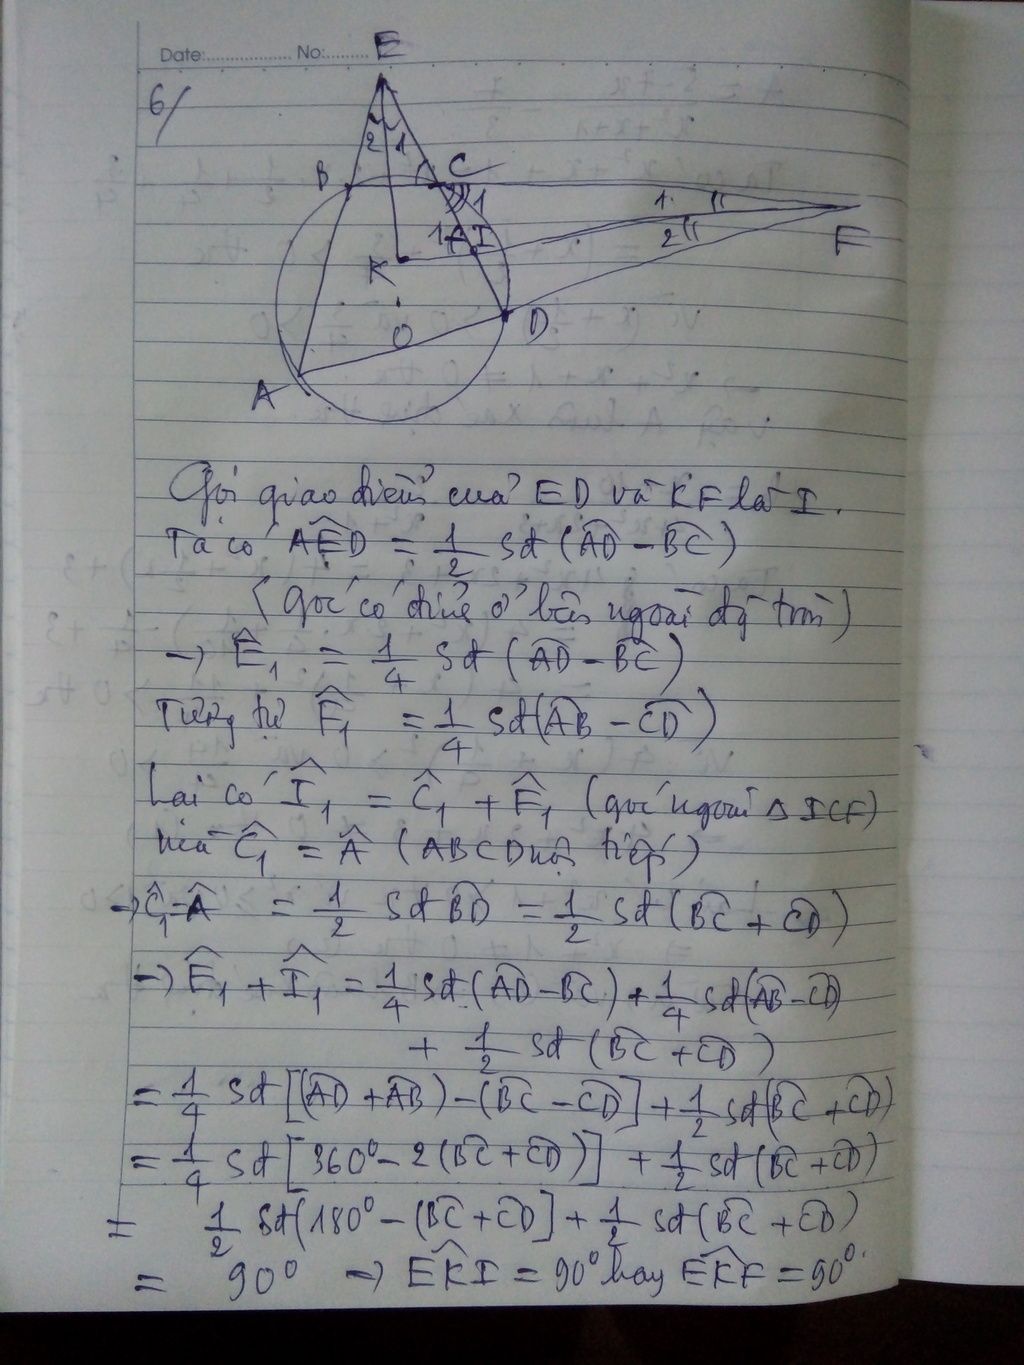 Date:.................... No:.........
E
6/
2 1
B C
1
1 I
1
2
F
K
O
D
A
Gọi giao điểm của ED và KF là I.
Ta có AÊD = 1/2 Sđ (AD⌢ - BC⌢)
(góc có đỉnh ở bên ngoài đg tròn)
→ Ê₁ = 1/4 Sđ (AD⌢ - BC⌢)
Tương tự F̂₁ = 1/4 Sđ(AB⌢ - CD⌢)
Lại có Î₁ = Ĉ₁ + F̂₁ (góc ngoài Δ ICF)
mà Ĉ₁ = Â (ABCD nội tiếp)
→ Ĉ₁ = Â = 1/2 Sđ BD⌢ = 1/2 Sđ (BC⌢ + CD⌢)
→ Ê₁ + Î₁ = 1/4 Sđ (AD⌢ - BC⌢) + 1/4 Sđ(AB⌢ - CD⌢)
+ 1/2 Sđ (BC⌢ + CD⌢)
= 1/4 Sđ [(AD⌢ + AB⌢) - (BC⌢ - CD⌢] + 1/2 Sđ(BC⌢ + CD⌢)
= 1/4 Sđ [360° - 2 (BC⌢ + CD⌢)] + 1/2 Sđ (BC⌢ + CD⌢)
= 1/2 Sđ(180° - (BC⌢ + CD⌢] + 1/2 Sđ (BC⌢ + CD⌢)
= 90° → EK̂I = 90° hay EK̂F = 90°.